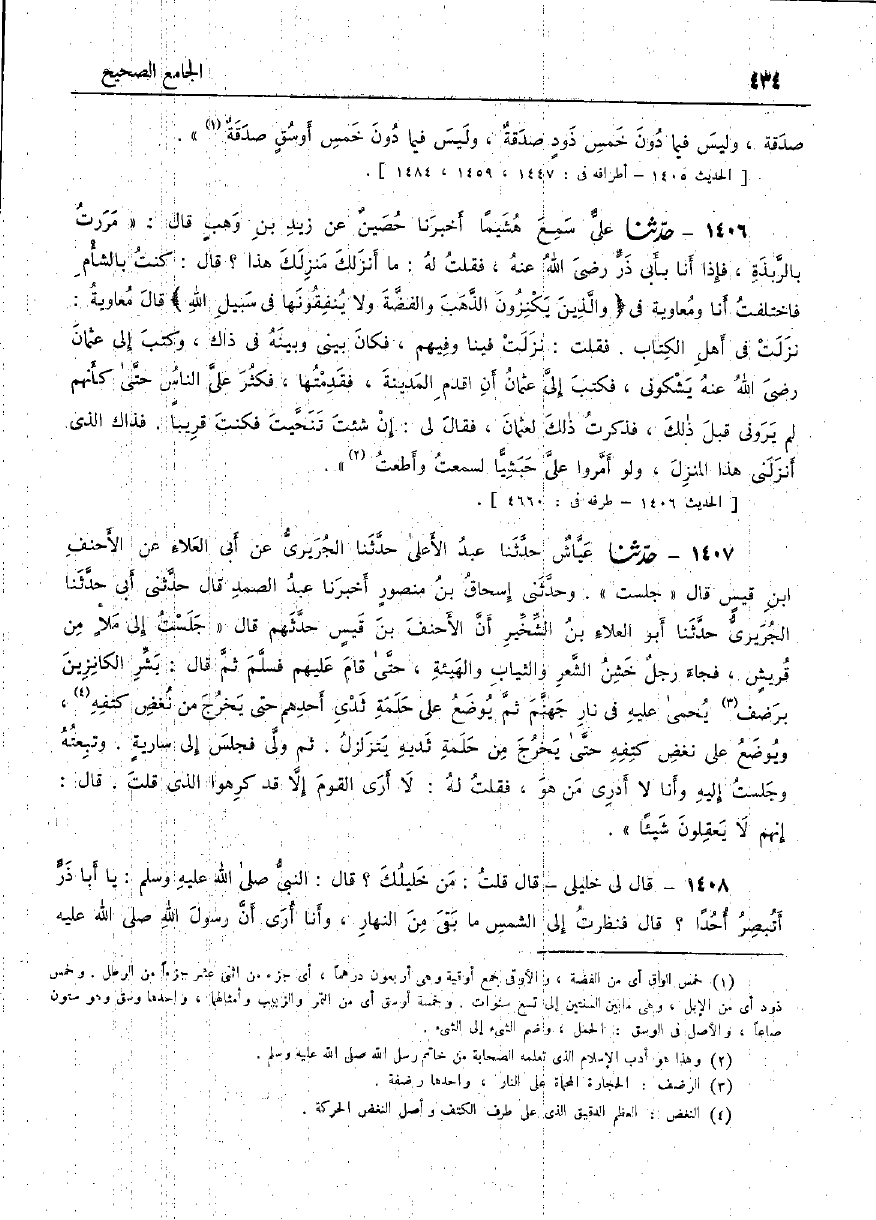 ٤٣٤ الجامع الصحيح
صدَقة ، وليسَ فيما دُونَ خَمسِ ذَودٍ صدَقةٌ ، ولَيسَ فيما دُونَ خَمسِ أَوسُقٍ صدَقَةٌ (١) » .
[ الحديث ١٤٠٥ – أطرافه فى : ١٤٤٧ ، ١٤٥٩ ، ١٤٨٤ ] .
١٤٠٦ – حدّثنا علىٌّ سَمِعَ هُشَيمًا أخبرَنا حُصَينٌ عن زيدِ بنِ وَهبٍ قالَ : « مَرَرتُ
بالرَّبذَةِ ، فإِذا أنا بأَبى ذَرٍّ رضىَ اللهُ عنهُ ، فقلتُ لهُ : ما أَنزلَكَ مَنزِلَكَ هذا ؟ قال : كنتُ بالشأمِ
فاختلفتُ أنا ومُعاوية فى ﴿ والَّذِينَ يَكْنِزُونَ الذَّهَبَ والفضَّةَ ولا يُنفِقُونَها فى سَبيلِ اللهِ ﴾ قالَ مُعاويةُ :
نزلَتْ فى أَهلِ الكِتاب . فقلت : نزَلَتْ فينا وفِيهم ، فكانَ بينى وبينَهُ فى ذاك ، وكتبَ إلى عثمانَ
رضىَ اللهُ عنهُ يَشْكونى ، فكتبَ إلىَّ عثمانُ أنِ اقدمِ المَدينةَ ، فقدِمْتُها ، فكثُرَ علىَّ الناسُ حتَّىٰ كأنهم
لم يَرَونى قبلَ ذٰلكَ ، فذكرتُ ذٰلكَ لعثمانَ ، فقالَ لى : إنْ شئتَ تَنحَّيتَ فكنتَ قريباً . فذاك الذى
أنزَلَنى هذا المنزِلَ ، ولو أَمَّروا علىَّ حَبَشِيًّا لسمعتُ وأطعتُ (٢) » .
[ الحديث ١٤٠٦ – طرفه فى : ٤٦٦٠ ] .
١٤٠٧ – حدّثنا عَيَّاشٌ حدَّثَنا عبدُ الأَعلىٰ حدَّثَنا الجُرَيرىُّ عن أبى العَلاءِ عنِ الأَحنفِ
ابنِ قيسٍ قال « جلست » . وحدَّثَنى إسحاقُ بنُ منصورٍ أخبرَنا عبدُ الصمدِ قال حدَّثنى أبى حدَّثَنا
الجُرَيرىُّ حدَّثَنا أبو العلاءِ بنُ الشِّخِّيرِ أنَّ الأَحنفَ بنَ قَيسٍ حدَّثَهم قال « جَلَسْتُ إلى مَلأٍ مِن
قُريشٍ ، فجاءَ رجلٌ خَشِنُ الشَّعرِ والثيابِ والهَيئةِ ، حتَّىٰ قامَ عَليهم فسلَّمَ ثمَّ قال : بَشِّرِ الكانِزِينَ
برَضف(٣) يُحمىٰ عليهِ فى نارِ جَهنَّمَ ثمَّ يُوضَعُ على حَلَمةِ ثَدْىِ أحدِهِم حتى يَخرُجَ من نُغضِ كتفِهِ(٤) ،
ويُوضَعُ على نغضِ كتِفِهِ حتَّىٰ يَخرُجَ مِن حَلَمةِ ثَديهِ يَتزَلزلُ . ثم ولَّى فجلسَ إلى ساريةٍ . وتبِعتُهُ
وجلَستُ إليهِ وأنا لا أَدرِى مَن هوَ ، فقلتُ لهُ : لَا أَرَى القومَ إلَّا قد كرِهوا الذى قلتَ . قال :
إنهم لَا يَعقِلونَ شَيئًا » .
١٤٠٨ – قال لى خليلى – قال قلتُ : مَن خَليلُكَ ؟ قال : النبىُّ صلىٰ اللهُ عليهِ وسلم : يا أبا ذَرٍّ
أَتُبصِرُ أُحُدًا ؟ قال فنظرتُ إلى الشمسِ ما بَقىَ مِنَ النهارِ ، وأنا أُرَى أنَّ رسولَ اللهِ صلى الله عليه
(١) خمس أواق أى من الفضة ، والأواقى جمع أوقية وهى أربعون درهماً ، أى جزء من اثنى عشر جزءاً من الرطل . وخمس
ذود أى من الإبل ، وهى مابين السنتين إلى تسع سنوات . وخمسة أوسق أى من التمر والزبيب وأمثالهما ، واحدها وسق وهو ستون
صاعاً ، والأصل فى الوسق : الحمل ، وضم الشىء إلى الشىء .
(٢) وهذا هو أدب الإسلام الذى تعلمه الصحابة من خاتم رسل الله صلى الله عليه وسلم .
(٣) الرضف : الحجارة المحماة على النار ، واحدها رضفة .
(٤) النغض : العظم الدقيق الذى على طرف الكتف وأصل النغض الحركة .